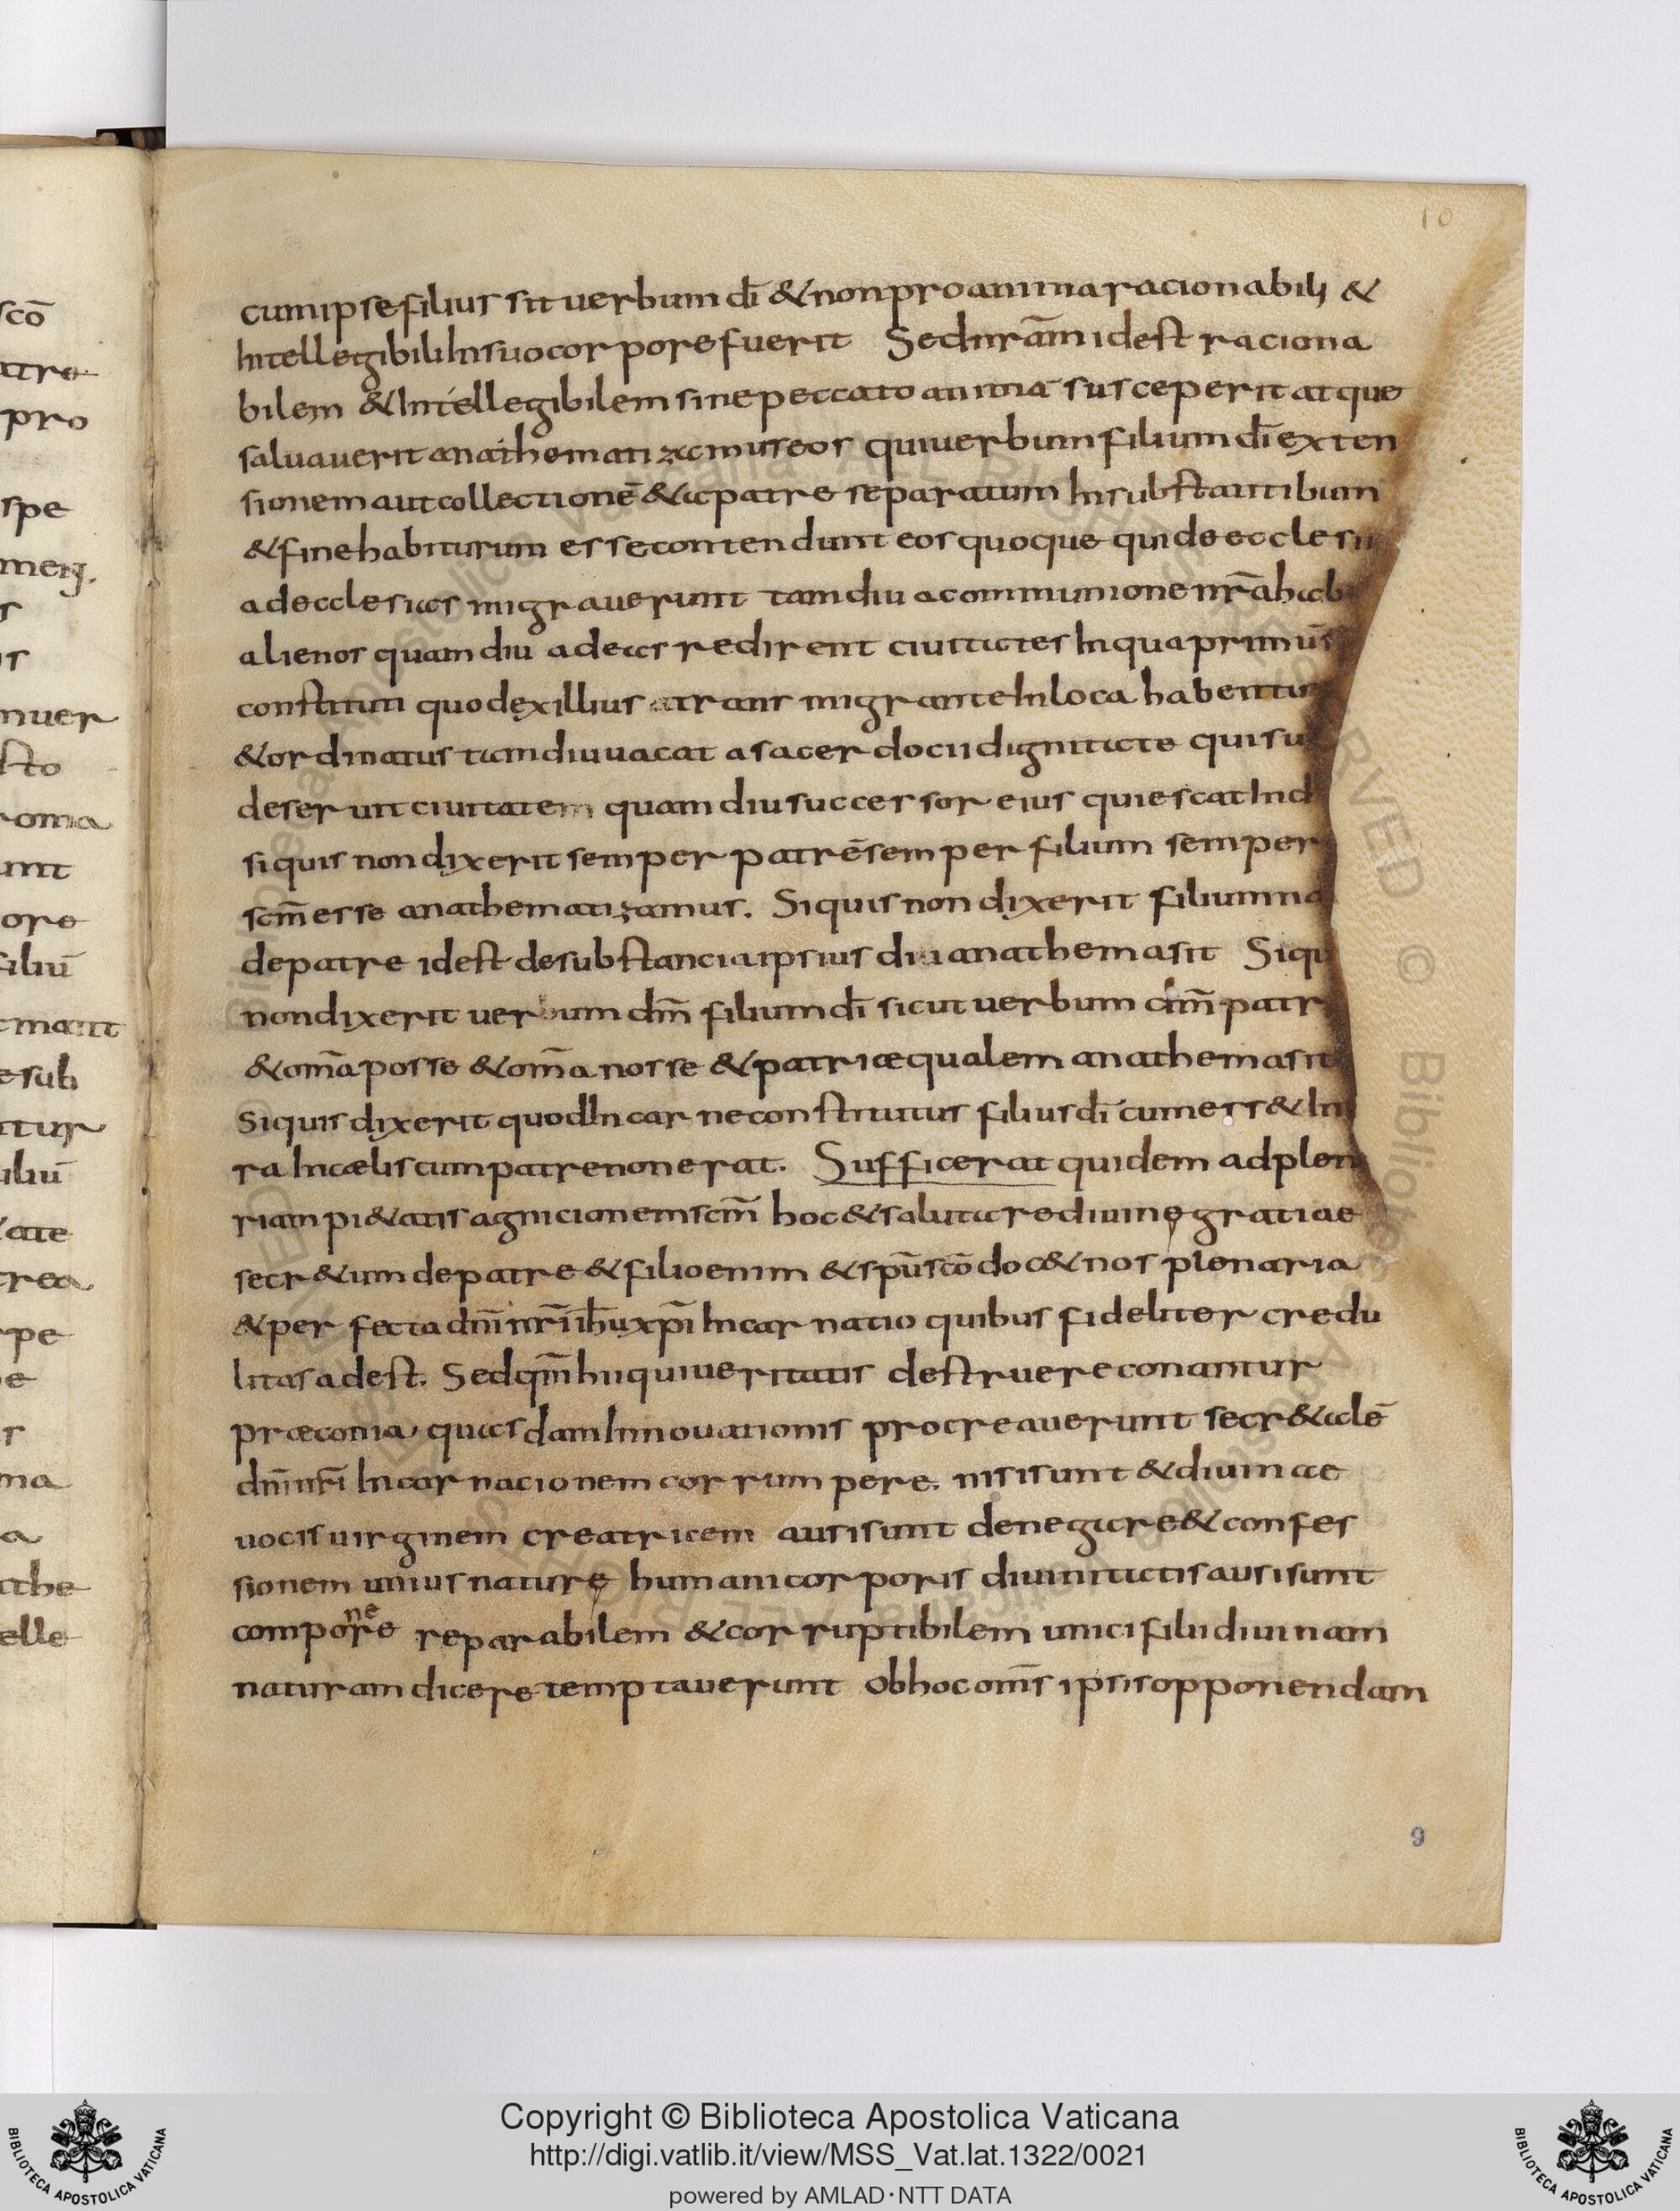 10
cum ipse filius sit uerbum dī & non pro anima racionabili &
Intellegibili In suo corpore fuerit Sed nrām id est raciona
bilem & Intellegibilem sine peccato animā susceperit atque
saluauerit anathematizamus eos qui uerbum filium dī exten
sionem aut collectionē & a patre separatum Insubstantibum
& fine habiturum esse contendunt eos quoque qui de
ad ecclesias migrauerunt tamdiu a communione nrā
alienos quamdiu ad eas redirent ciuitates In qua
constituti quod ex illius migrante In loca
& ordinatus tamdiu uacat a sacerdocii dignitate qui
deserunt ciuitatem quamdiu successor eius quiescat
si quis non dixerit semper patrē semper filium semper
scm̄ esse anathematizamus. Si quis non dixerit filium
de patre id est de substancia ipsius anathema sit
non dixerit uerbum dm̄ filium dī sicut uerbum dm̄
& om̄a posse & om̄a nosse & patri æqualem anathema sit
Si quis dixerit quod In carne constitutus filius dī cum
ra In cælis cum patre non erat. Sufficerat quidem ad
riam pi&atis agnicionem scm̄ hoc & salutare diuinę gratiae
secr&um de patre & filio enim & spū scō doc& nos plenaria
& perfecta dnī nrī ihū xpī Incarnatio quibus fideliter credu
litas adest. Sed qm̄ hii qui ueritatis destruere conantur
præconia quasdam Innouationis procreauerunt secr& alē
dnī nrī Incarnacionem corrumpere. nisi sunt & diuinae
uocis uirginem creatricem ausi sunt denegare & confes
sionem unius naturę humani corporis diuinitatis ausi sunt
componere reparabilem & corruptibilem unici filii diuinam
naturam dicere temptauerunt Ob hoc om̄s ipsis opponendam
9
Copyright © Biblioteca Apostolica Vaticana
http://digi.vatlib.it/view/MSS_Vat.lat.1322/0021
powered by AMLAD·NTT DATA
BIBLIOTECA APOSTOLICA VATICANA
BIBLIOTECA APOSTOLICA VATICANA